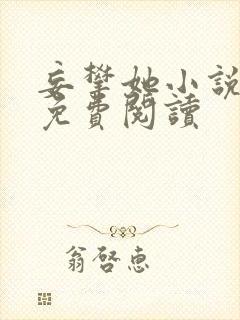 妄攀她小說
免費閱讀
翁啓惠